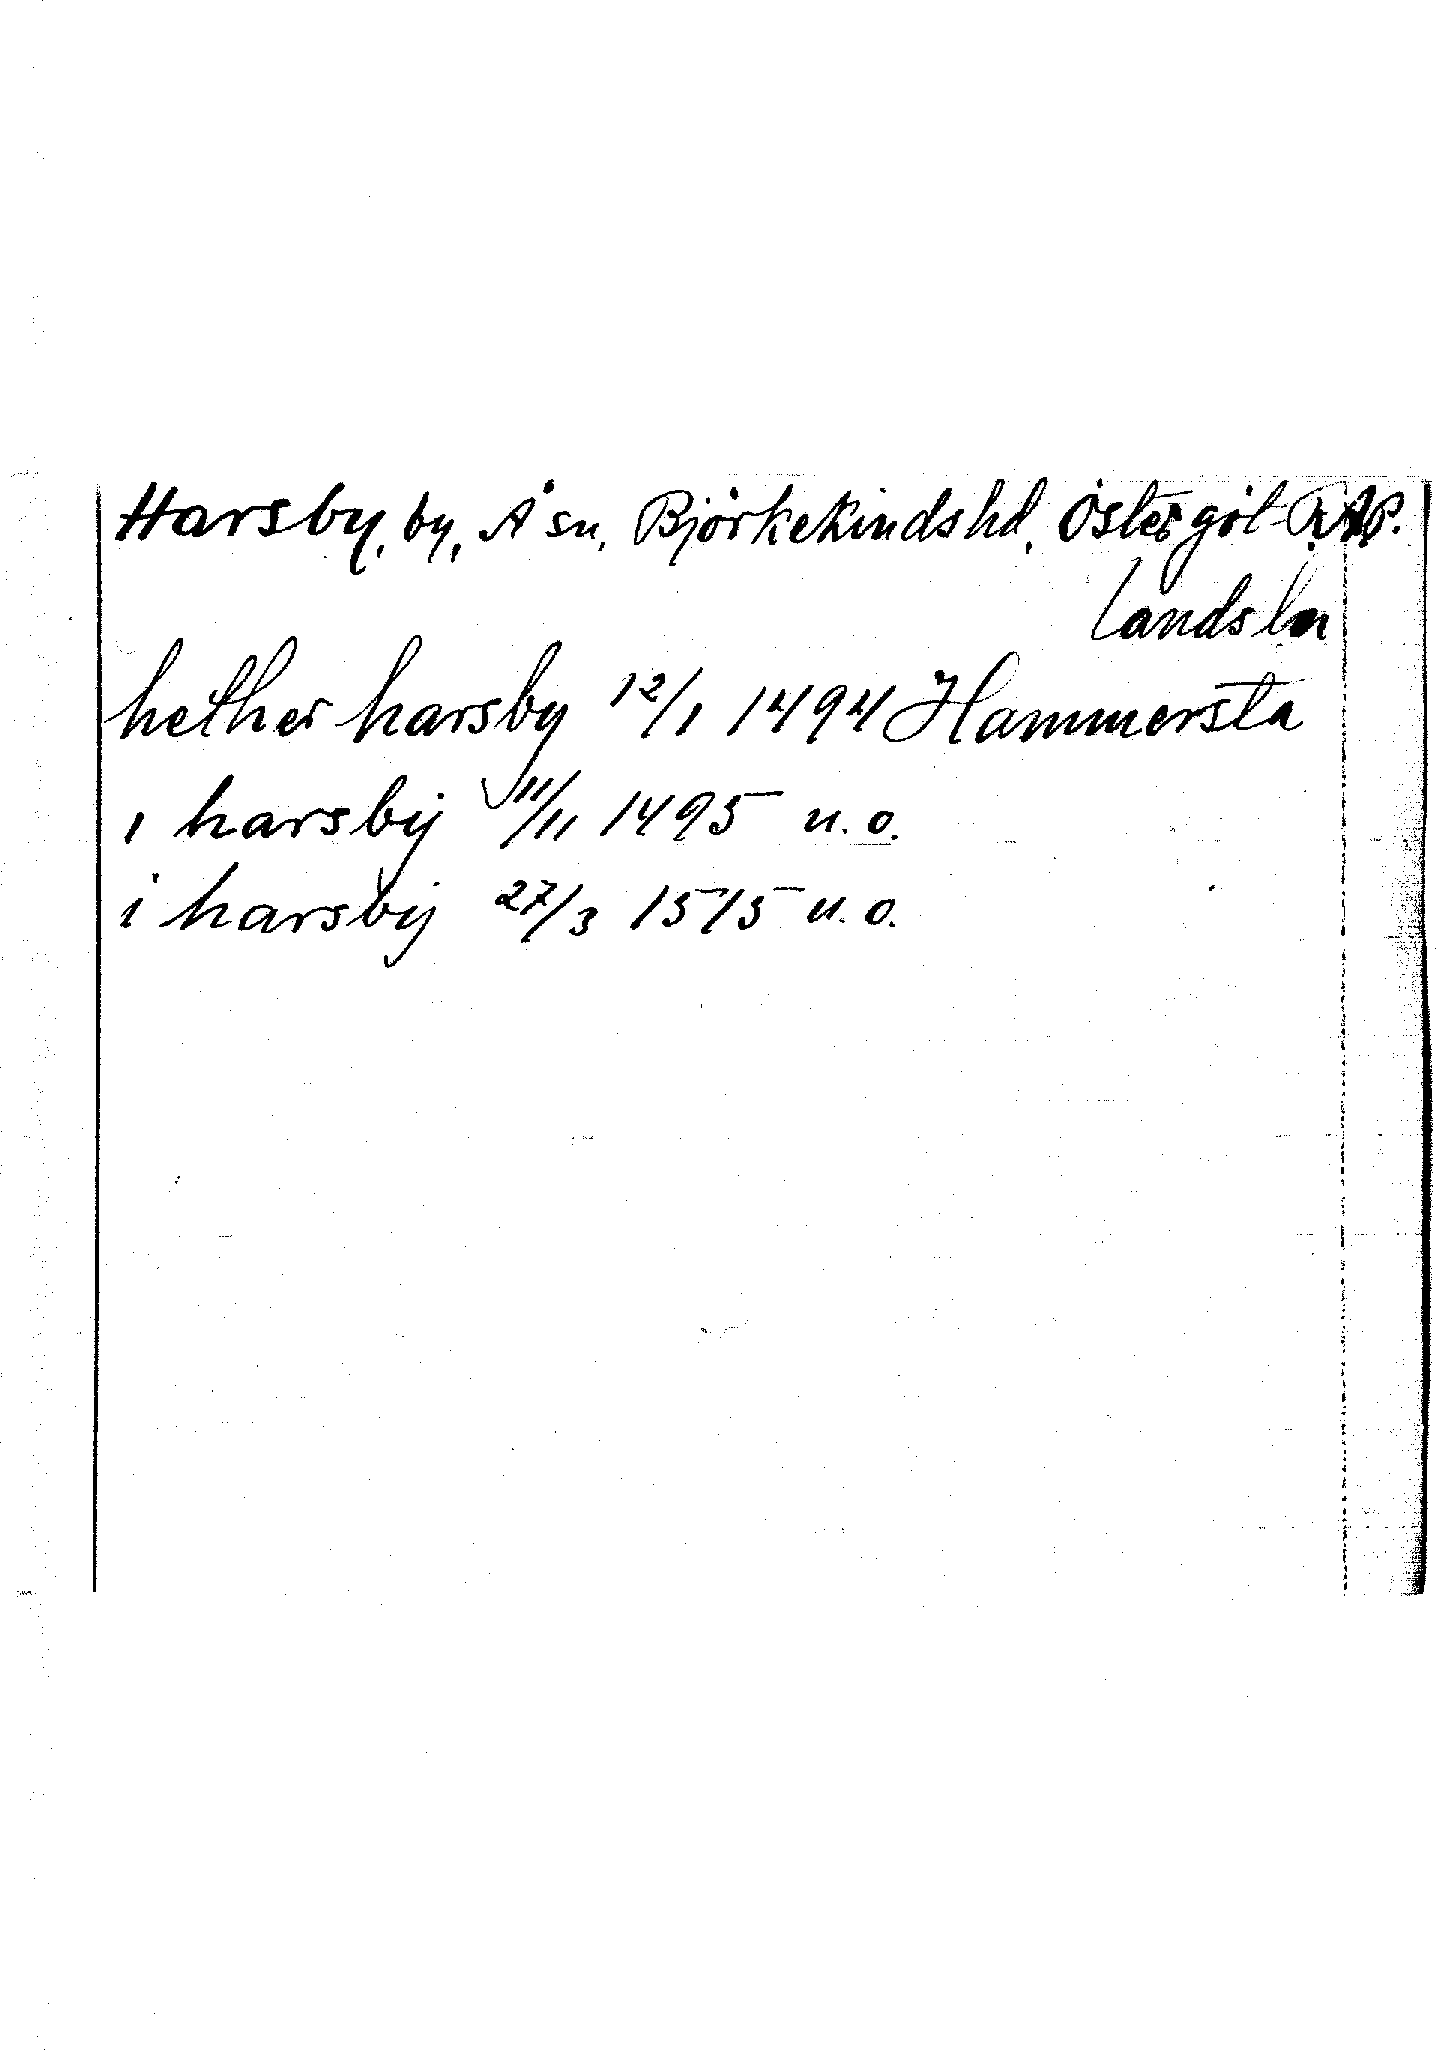 Harsby, by, Å sn, Björkekinds hd, Östergöt- RAP.
lands län
hether harsby 12/1 1494 Hammersta
i harsby 11/11 1495 u.o.
i harsby 27/3 1515 u.o.